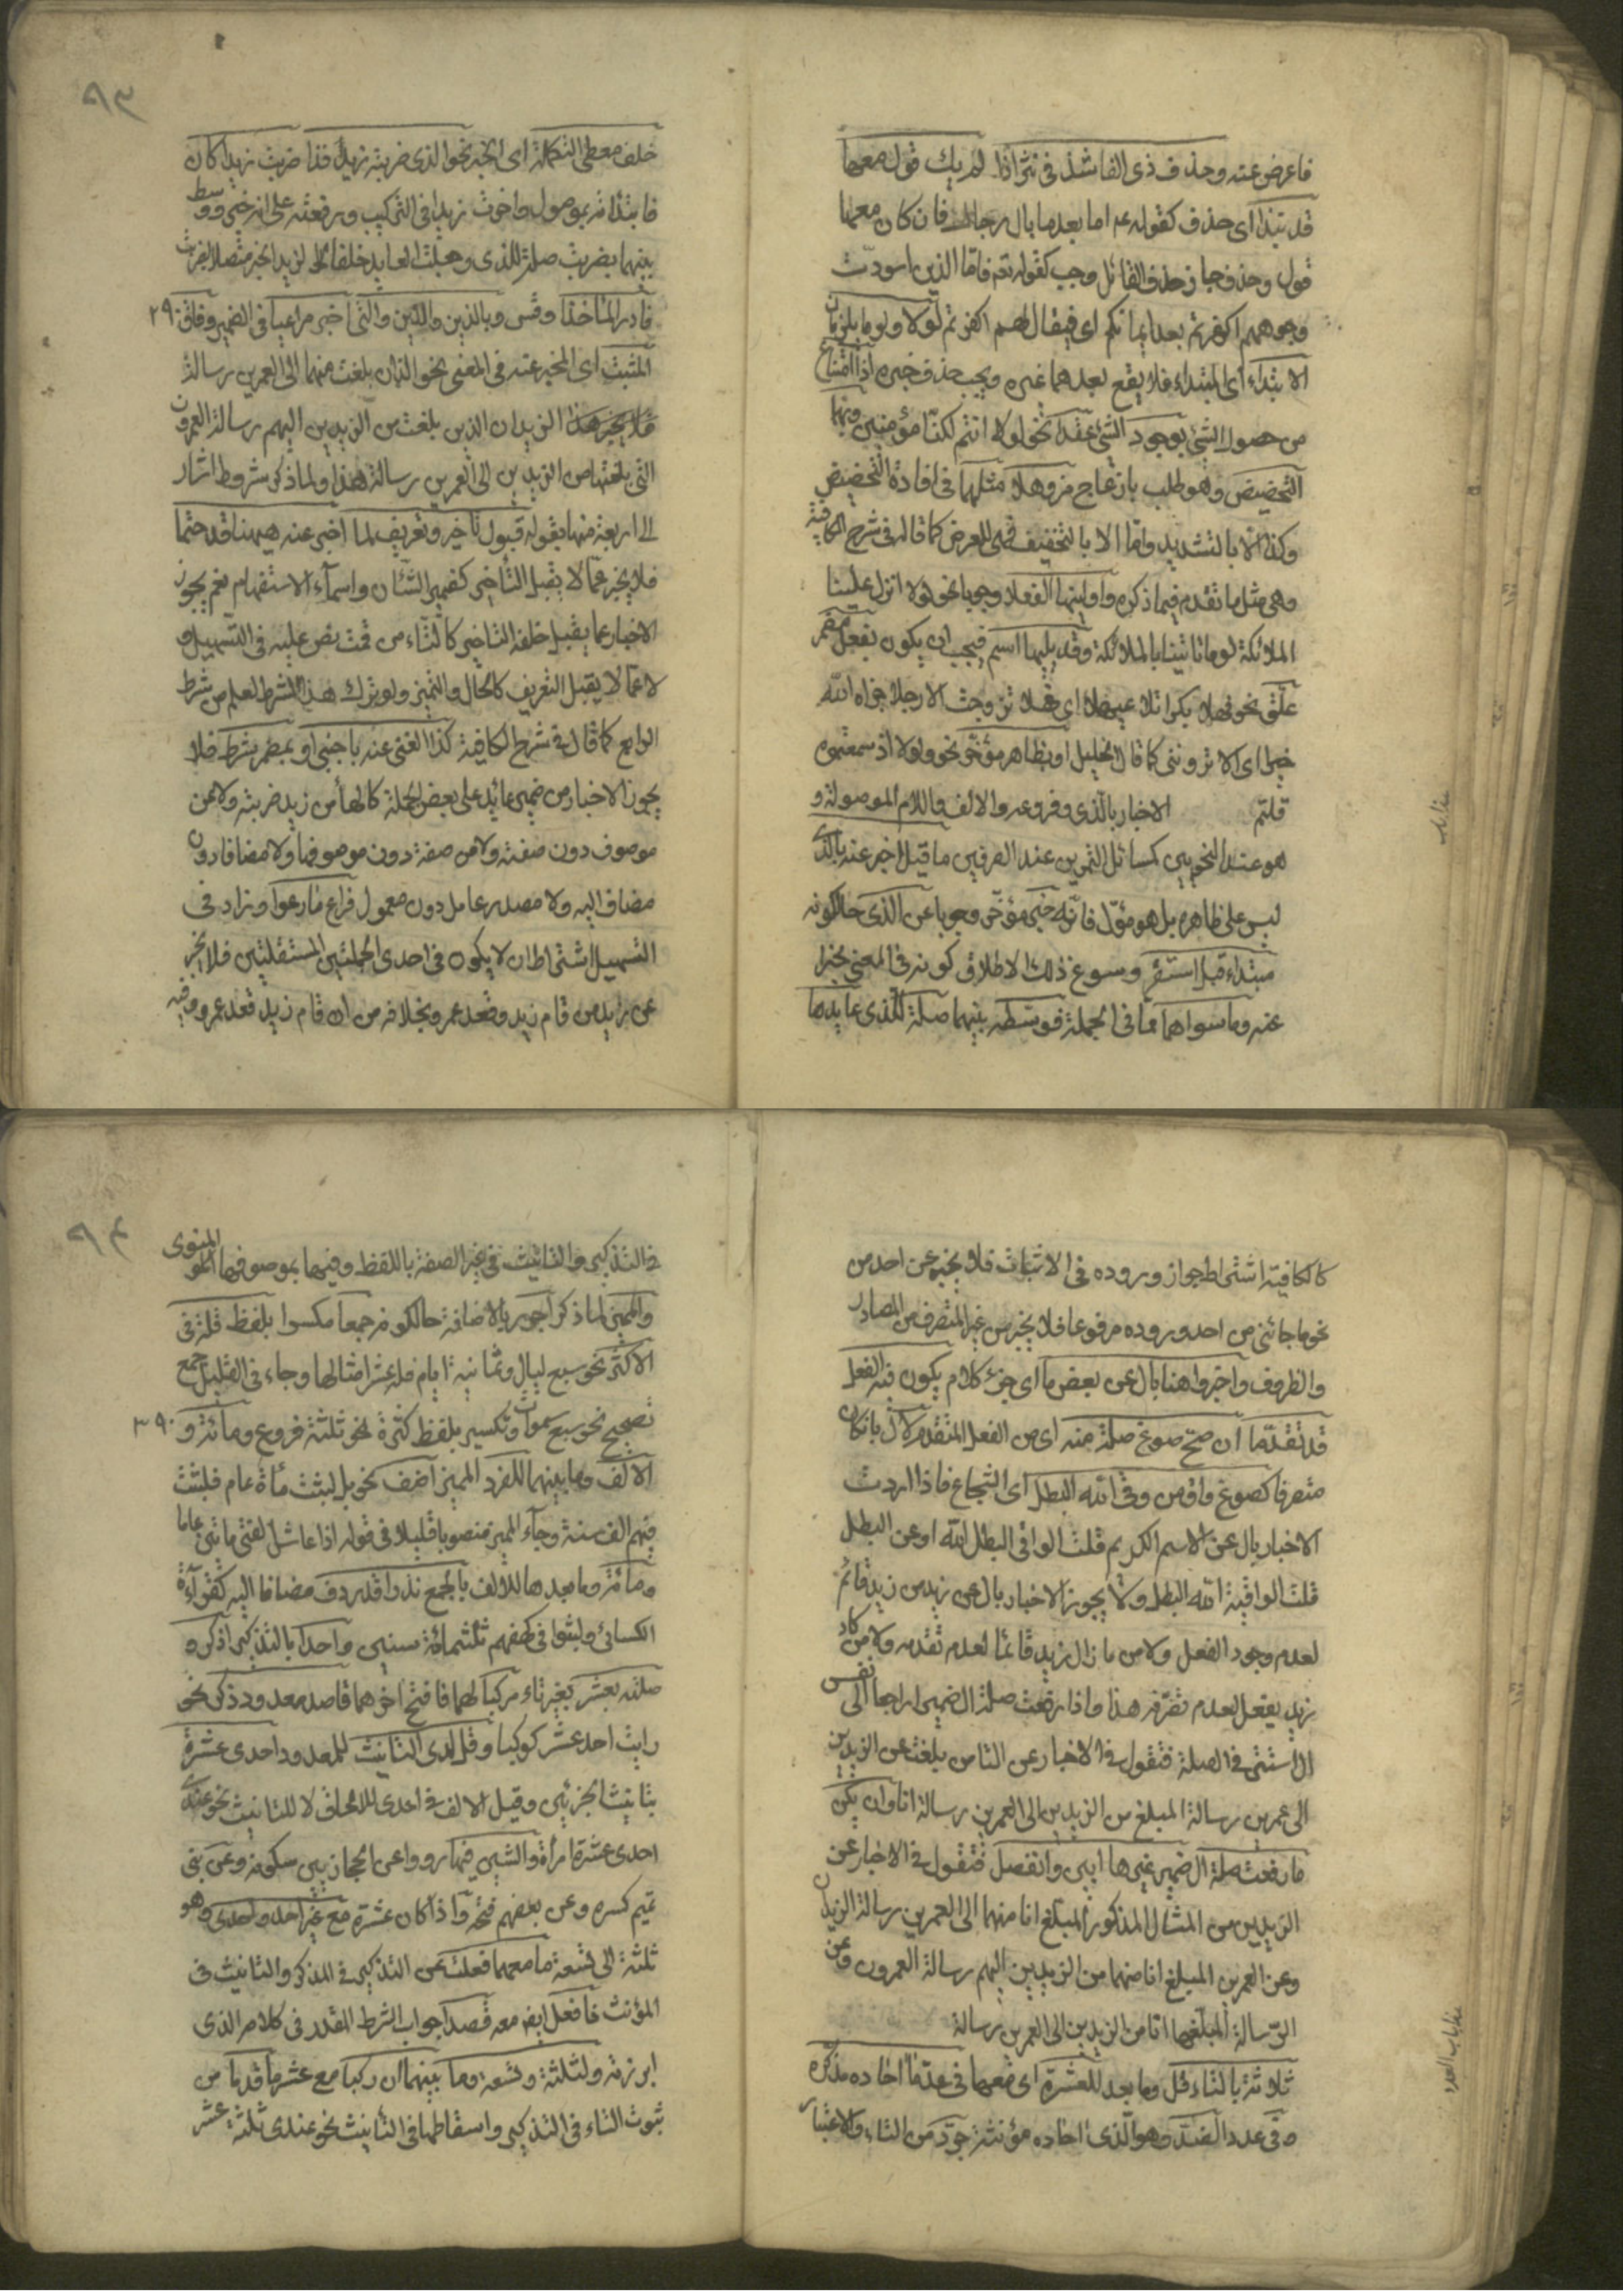 فاعرض عنه وحذف ذى الفا شذ فى نثر اذا لم يك قول معها
قد نبذا اى حذف كقوله عم اما بعد ما بال رجال فان كان معها
قول وحذف جاز حذف الفا بل وجب كقوله تعه فاما الذين اسودت
وجوههم اكفرتم بعد ايمانكم اى فيقال لهم اكفرتم لولا ولوما يلزمان
الابتداء اى المبتداء فلا يقع بعدهما غيره ويجب حذف خبره اذا امتناع
من حصول الشئ بوجود الشئ عقدا نحو لولا انتم لكنّا مؤمنين وبهما
التحضيض وهو طلب بازعاج مز وهلا مثلهما فى افادة التحضيض
وكذا الّا بالتشديد وامّا الا بالتخفيف فهى للعرض كما قال فى شرح الكافية
وهى مثل ما تقدم فيما ذكره واولينها الفعلا وجوبا نحو لولا انزل علينا
الملائكة لوما تاتينا بالملائكة وقد يليها اسم فيجب ان يكون بفعل مضمر
علّق نحو فهلا بكرا تلاعبها اى فهلا تزوجت الا رجلا جزاه الله
خيرا اى الا تروننى كما قال الخليل او بظاهر مؤخّر نحو ولولا اذ سمعتموه
قلتم الاخبار بالذى وفروعه والالف واللام الموصولة و
هو عند النحويين كمسائل التمرين عند الصرفيين ما قيل اخبر عنه بالذى
ليس على ظاهره بل هو مؤول فانّه خبر مؤخّر وجوبا عن الذى حالكونه
مبتداء قبل استقر وسوغ ذلك الاطلاق كونه فى المعنى مخبرا
عنه وما سواهما مما فى الجملة فوسّطه بينهما صلة للذى عايدها
٨٣
خلف معطى التكملة اى الخبر نحو الذى ضربته زيد فذا ضربت زيدا كان
فابتدأته بموصول واخرت زيدا فى التركيب ورفعته على انه خبر ووسط
بينهما بضربت صلة للذى وجعلت العايد خلفا لزيد الخبر متصلا بضربت
فادر المأخذا وقس وباللذين والذين والتى اخبر مراعيا فى الضمير وفاق ٢٩٠
المثبت اى المخبر عنه فى المعنى نحو اللذان بلغت منهما الى العمرين رسالة
الزيدان الذين بلغت من الزيدين اليهم رسالة العمرون
التى بلغتها من الزيدين الى العمرين رسالة هذا ولما ذكر شروط اشار
الى اربعة منها بقوله قبول تأخير وتعريف لما اخبر عنه هيهنا قد حتما
فلا يخبر عمّا لا يقبل التأخير كضمير الشّان واسمآء الاستفهام نعم يجوز
الاخبار عما يقبل خلفه التاخير كالتاء من قمت نص عليه فى التسهيل و
لا عمّا لا يقبل التعريف كالحال والتميز ولو ترك هذا الشرط لعلم من شرط
الرابع كما قال فى شرح الكافية كذا الغنى عنه باجنبى او بمضمر شرط فلا
يجوز الاخبار من ضمير عائد على بعض الجملة كالهاء من زيد ضربته ولا عن
موصوف دون صفته ولا من صفة دون موصوفها ولا مضاف دون
مضاف اليه ولا مصدر عامل دون معمول فراع ما رعوا وزاد فى
التسهيل اشتراط ان لا يكون فى احدى الجملتين المستقلتين فلا يخبر
عن زيد من قام زيد وقعد عمرو بخلافه من ان قام زيد قعد عمرو وفيه
كالكافية اشتراط جواز وروده فى الاثبات فلا يخبر عن احد من
نحو ما جائنى من احد وروده مرفوعا فلا يخبر من غير المتصرف من المصادر
والظروف واخبروا هنا بال عن بعض ما اى جزء كلام يكون فيه الفعل
قد تقدّما ان صحّ صوغ صلة منه اى من الفعل المتقدم لال بان كان
متصرفا كصوغ واق من وقى الله البطل اى الشجاع فاذا اردت
الاخبار بال عن الاسم الكريم قلت الواقى البطل الله او عن البطل
قلت الواقيه الله البطل ولا يجوز الاخبار بال عن زيد من زيد قائم
لعدم وجود الفعل ولا من ما زال زيد قائما لعدم تقدمه ولا من كاد
زيد يفعل لعدم تصرّفه هذا واذا رفعت صلة ال ضميرا راجعا الى نفس
ال استتر فى الصلة فتقول فى الاخبار عن التاء من بلغت من الزيدين
الى عمرين رسالة المبلغ من الزيدين الى العمرين رسالة انا وان يكن
ما رفعت صلة ال ضمير غيرها ابين وانفصل فتقول فى الاخبار عن
الزيدين من المثال المذكور المبلغ انا منهما الى العمرين رسالة الزيدان
وعن العمرين المبلغ انا من الزيدين اليهم رسالة العمرون وعن
الرّسالة المبلّغها انا من الزيدين الى العمرين رسالة
ثلاثة بالتاء قل وما بعد للعشرة اى معها فى عدّ ما احاده مذكّره
و فى عدد الضدّ وهو الّذى احاده مؤنثة جرّد من التاء والاعتبار
٨٤
فى التذكير والتانيث فى غير الصفة باللفظ وفيها بموصوفها المنوى
والمميز لما ذكر اجرر بالاضافة حالكونه جمعا مكسرا بلفظ قلة فى
الاكثر نحو سبع ليال وثمانية ايام فله عشر امثالها وجاء فى القليل جمع
تصحيح نحو سبع سموات وتكسير بلفظ كثرة نحو ثلثة قروء ومائة و ٣٩٠
الالف وما بينهما للفرد المميز اضف نحو بل لبثت مأة عام فلبثت
فيهم الف سنة وجآء المميز منصوبا قليلا فى قوله اذا عاش الفتى مأتين عاما
ومائة وما بعدها للالف بالجمع نذرا قد ردف مضافا اليه كقرآءة
الكسائى ولبثوا فى كهفهم ثلثمائة سنين واحد بالتذكير اذكر و
صلنه بعشر بغير تاء مركبا لهما فافتح آخرهما قاصد معدود ذكر نحو
رايت احد عشر كوكبا وقل لدى التانيث للمعدود احدى عشرة
بتانيث الجزئين وقيل الالف فى احدى للالحاق لا للتانيث نحو عندى
احدى عشرة امرأة والشين فيها رووا عن الحجازيين سكونه وعن بنى
تميم كسره وعن بعضهم فتحه واذا كان عشرة مع غير احد واحدى وهو
ثلثة الى تسعة ما معهما فعلت من التذكير فى المذكر والتانيث فى
المؤنث فافعل ايضا معه قصدا جواب الشرط المقدر فى كلامه الذى
ابرزته ولثلثة وتسعة وما بينهما ان ركبا مع عشر ما قدما من
ثبوت التاء فى التذكير واسقاطها فى التأنيث نحو عندى ثلثة عشر